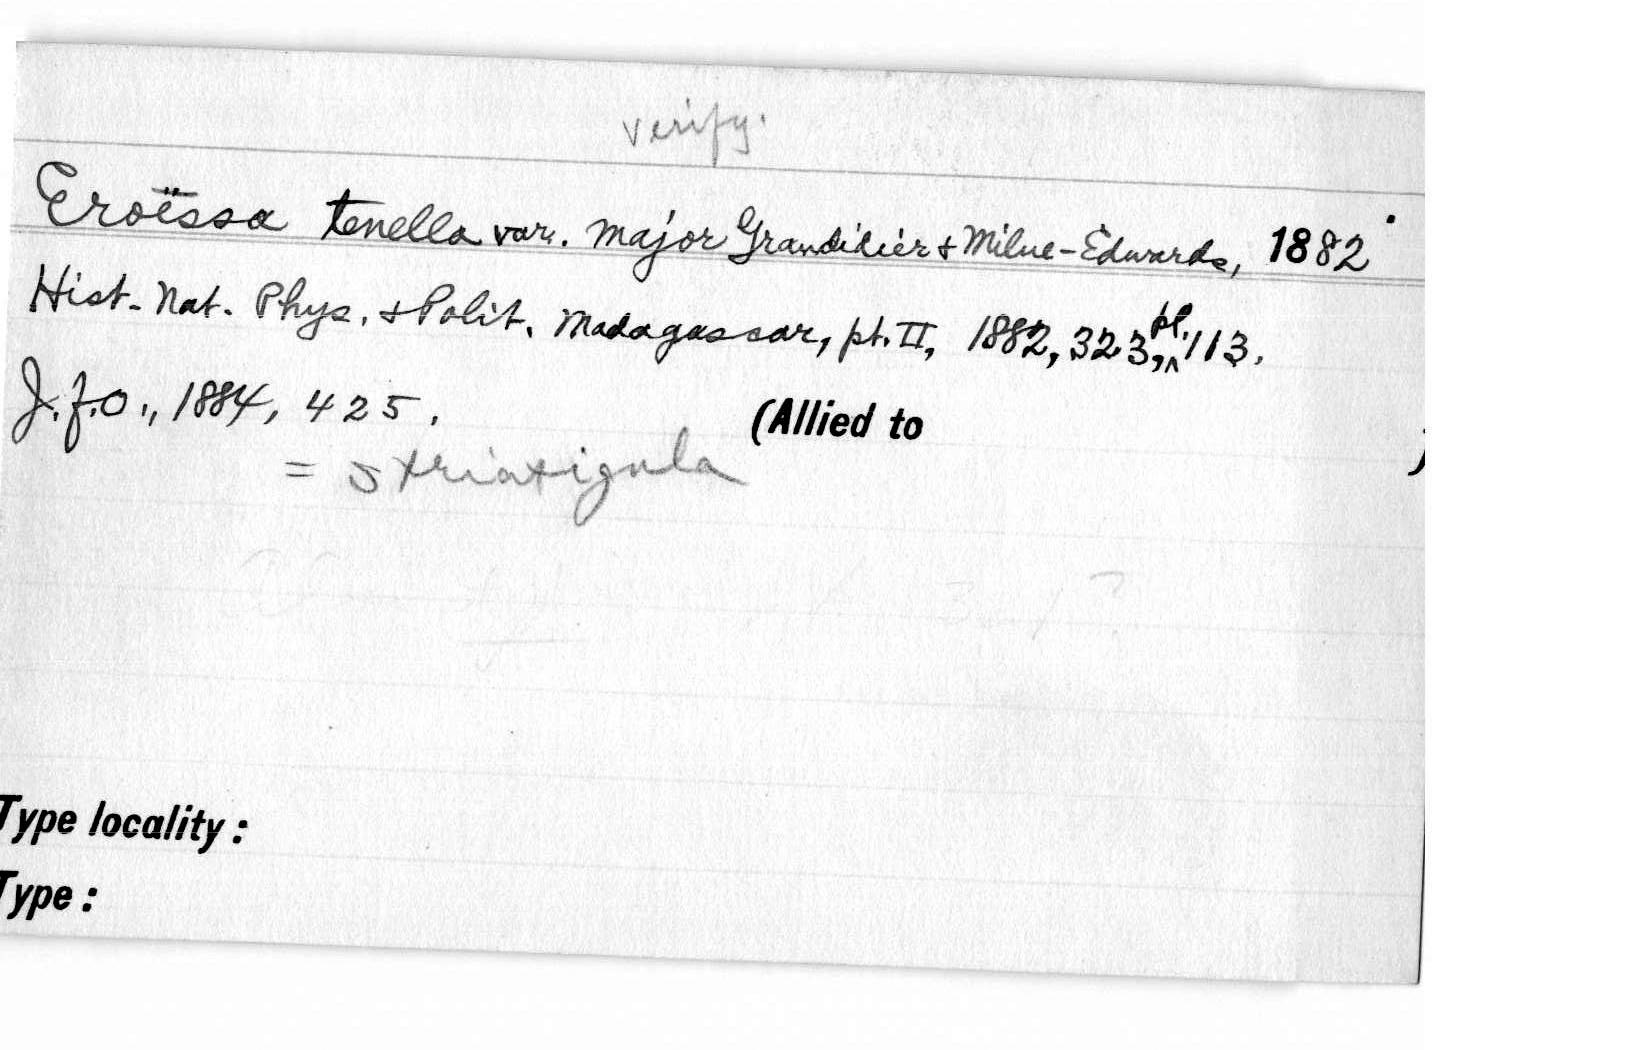 verify.
Eroëssa tenella var. major Grandidier & Milne-Edwards, 1882
Hist. Nat. Phys. & Polit. Madagascar, pt. II, 1882, 323, pl. 113.
J.f.O., 1884, 425. (Allied to )
= striatigula
Type locality:
Type: